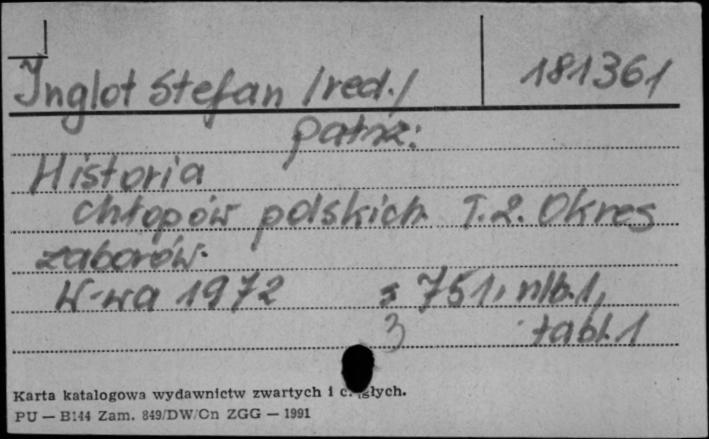 Inglot Stefan /red./ 181361
patrz:
Historia
chłopów polskich. T.2. Okres
zaborów.
W-wa 1972 s 751, nlb.1,
3 tabl.1
Karta katalogowa wydawnictw zwartych i ciągłych.
PU — B144 Zam. 849/DW/Cn ZGG — 1991